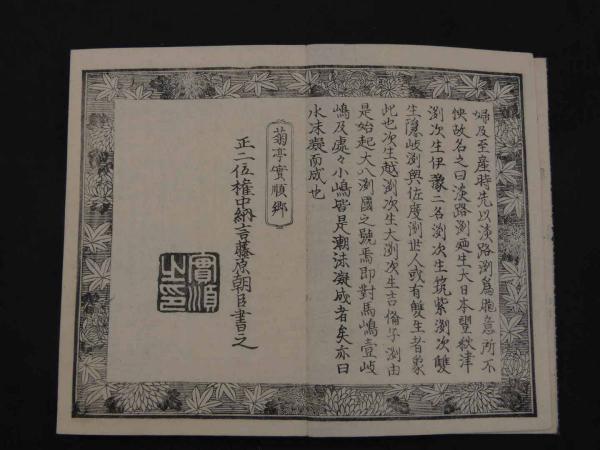 婦及至産時先以淡路洲為胞意所不
快故名之曰淡路洲廼生大日本豐秋津
洲次生伊豫二名洲次生筑紫洲次雙
生隱岐洲與佐度洲世人或有雙生者象
此也次生越洲次生大洲次生吉備子洲由
是始起大八洲國之號焉即對馬嶋壹岐
嶋及處々小嶋皆是潮沫凝成者矣亦曰
水沫凝而成也
菊亭實順郷
正二位權中納言藤原朝臣書之
實順之印